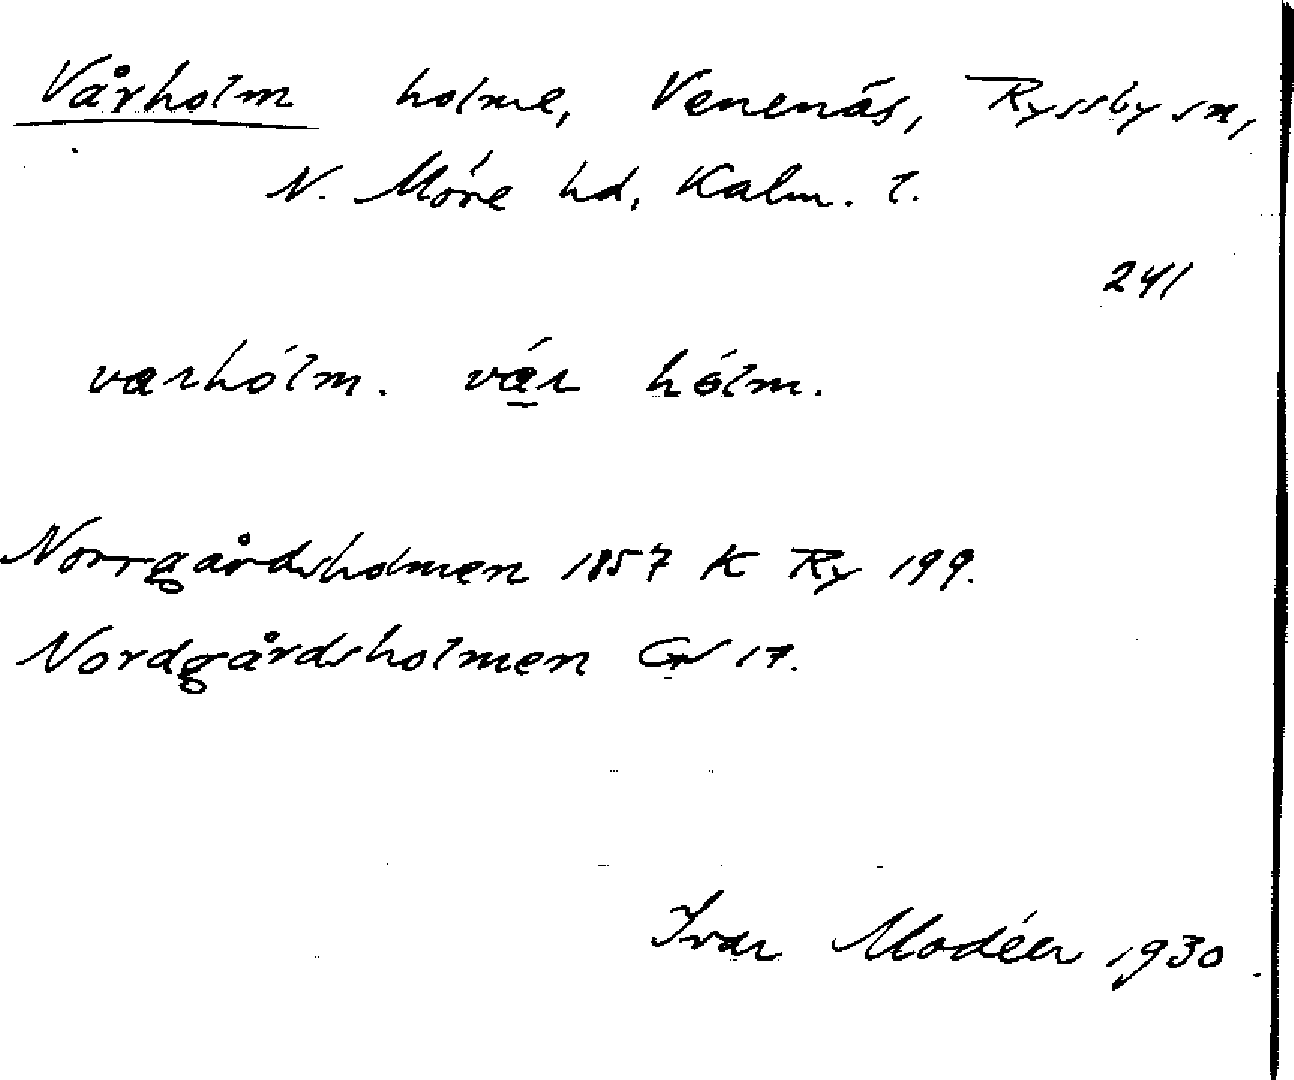 Vårholm holme, Venenäs, Ryssby sn,
N. Möre hd, Kalm. l.
241
varhólm. vár hólm.
Norrgårdsholmen 1857 K Ry 199.
Nordgårdsholmen GV 17.
Ivar Modéer 1930.